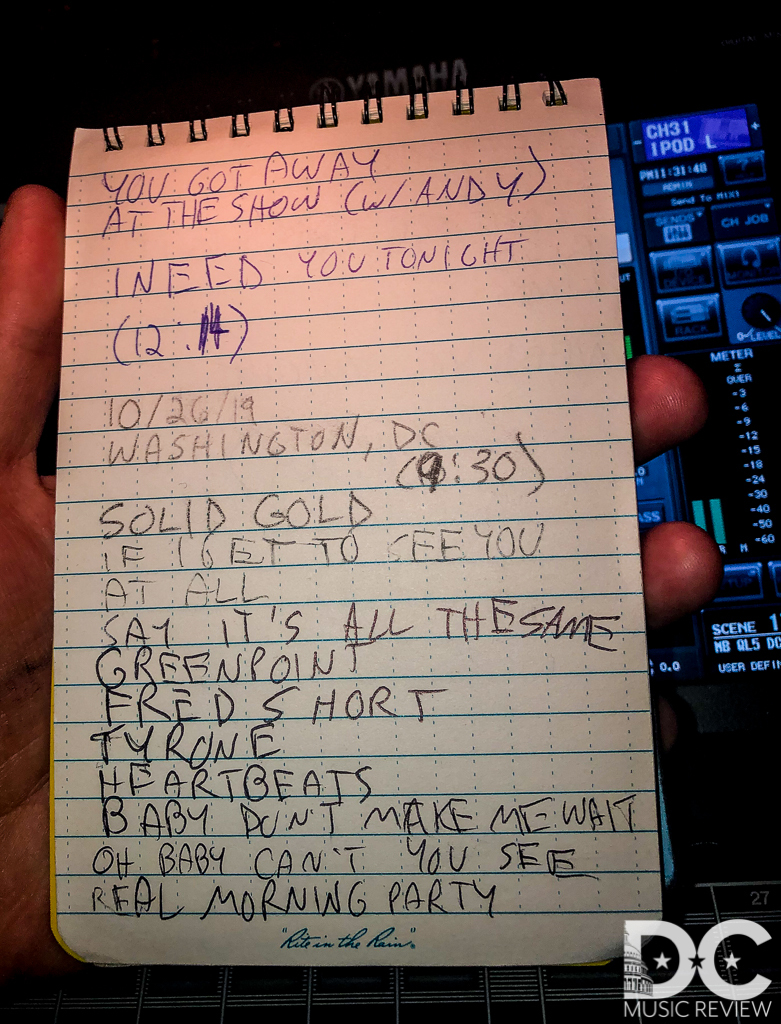 YAMAHA
YOU GOT AWAY
AT THE SHOW (W/ ANDY)
I NEED YOU TONIGHT
(12:14)
10/26/19
WASHINGTON, DC
(9:30)
SOLID GOLD
IF I GET TO SEE YOU
AT ALL
SAY IT'S ALL THE SAME
GREENPOINT
FRED SHORT
TYRONE
HEARTBEATS
BABY DON'T MAKE ME WAIT
OH BABY CAN'T YOU SEE
REAL MORNING PARTY
"Rite in the Rain"®
CH31
IPOD L
PM11:31:48
ADMIN
Send To MIX1
SENDS
CH JOB
RACK
LEVEL
METER
Σ
OVER
-3
-6
-9
-12
-15
-18
-24
-30
-40
-50
-60
SCENE 1
MB QL5 DC
USER DEFIN
0.0
27
DC
MUSIC REVIEW